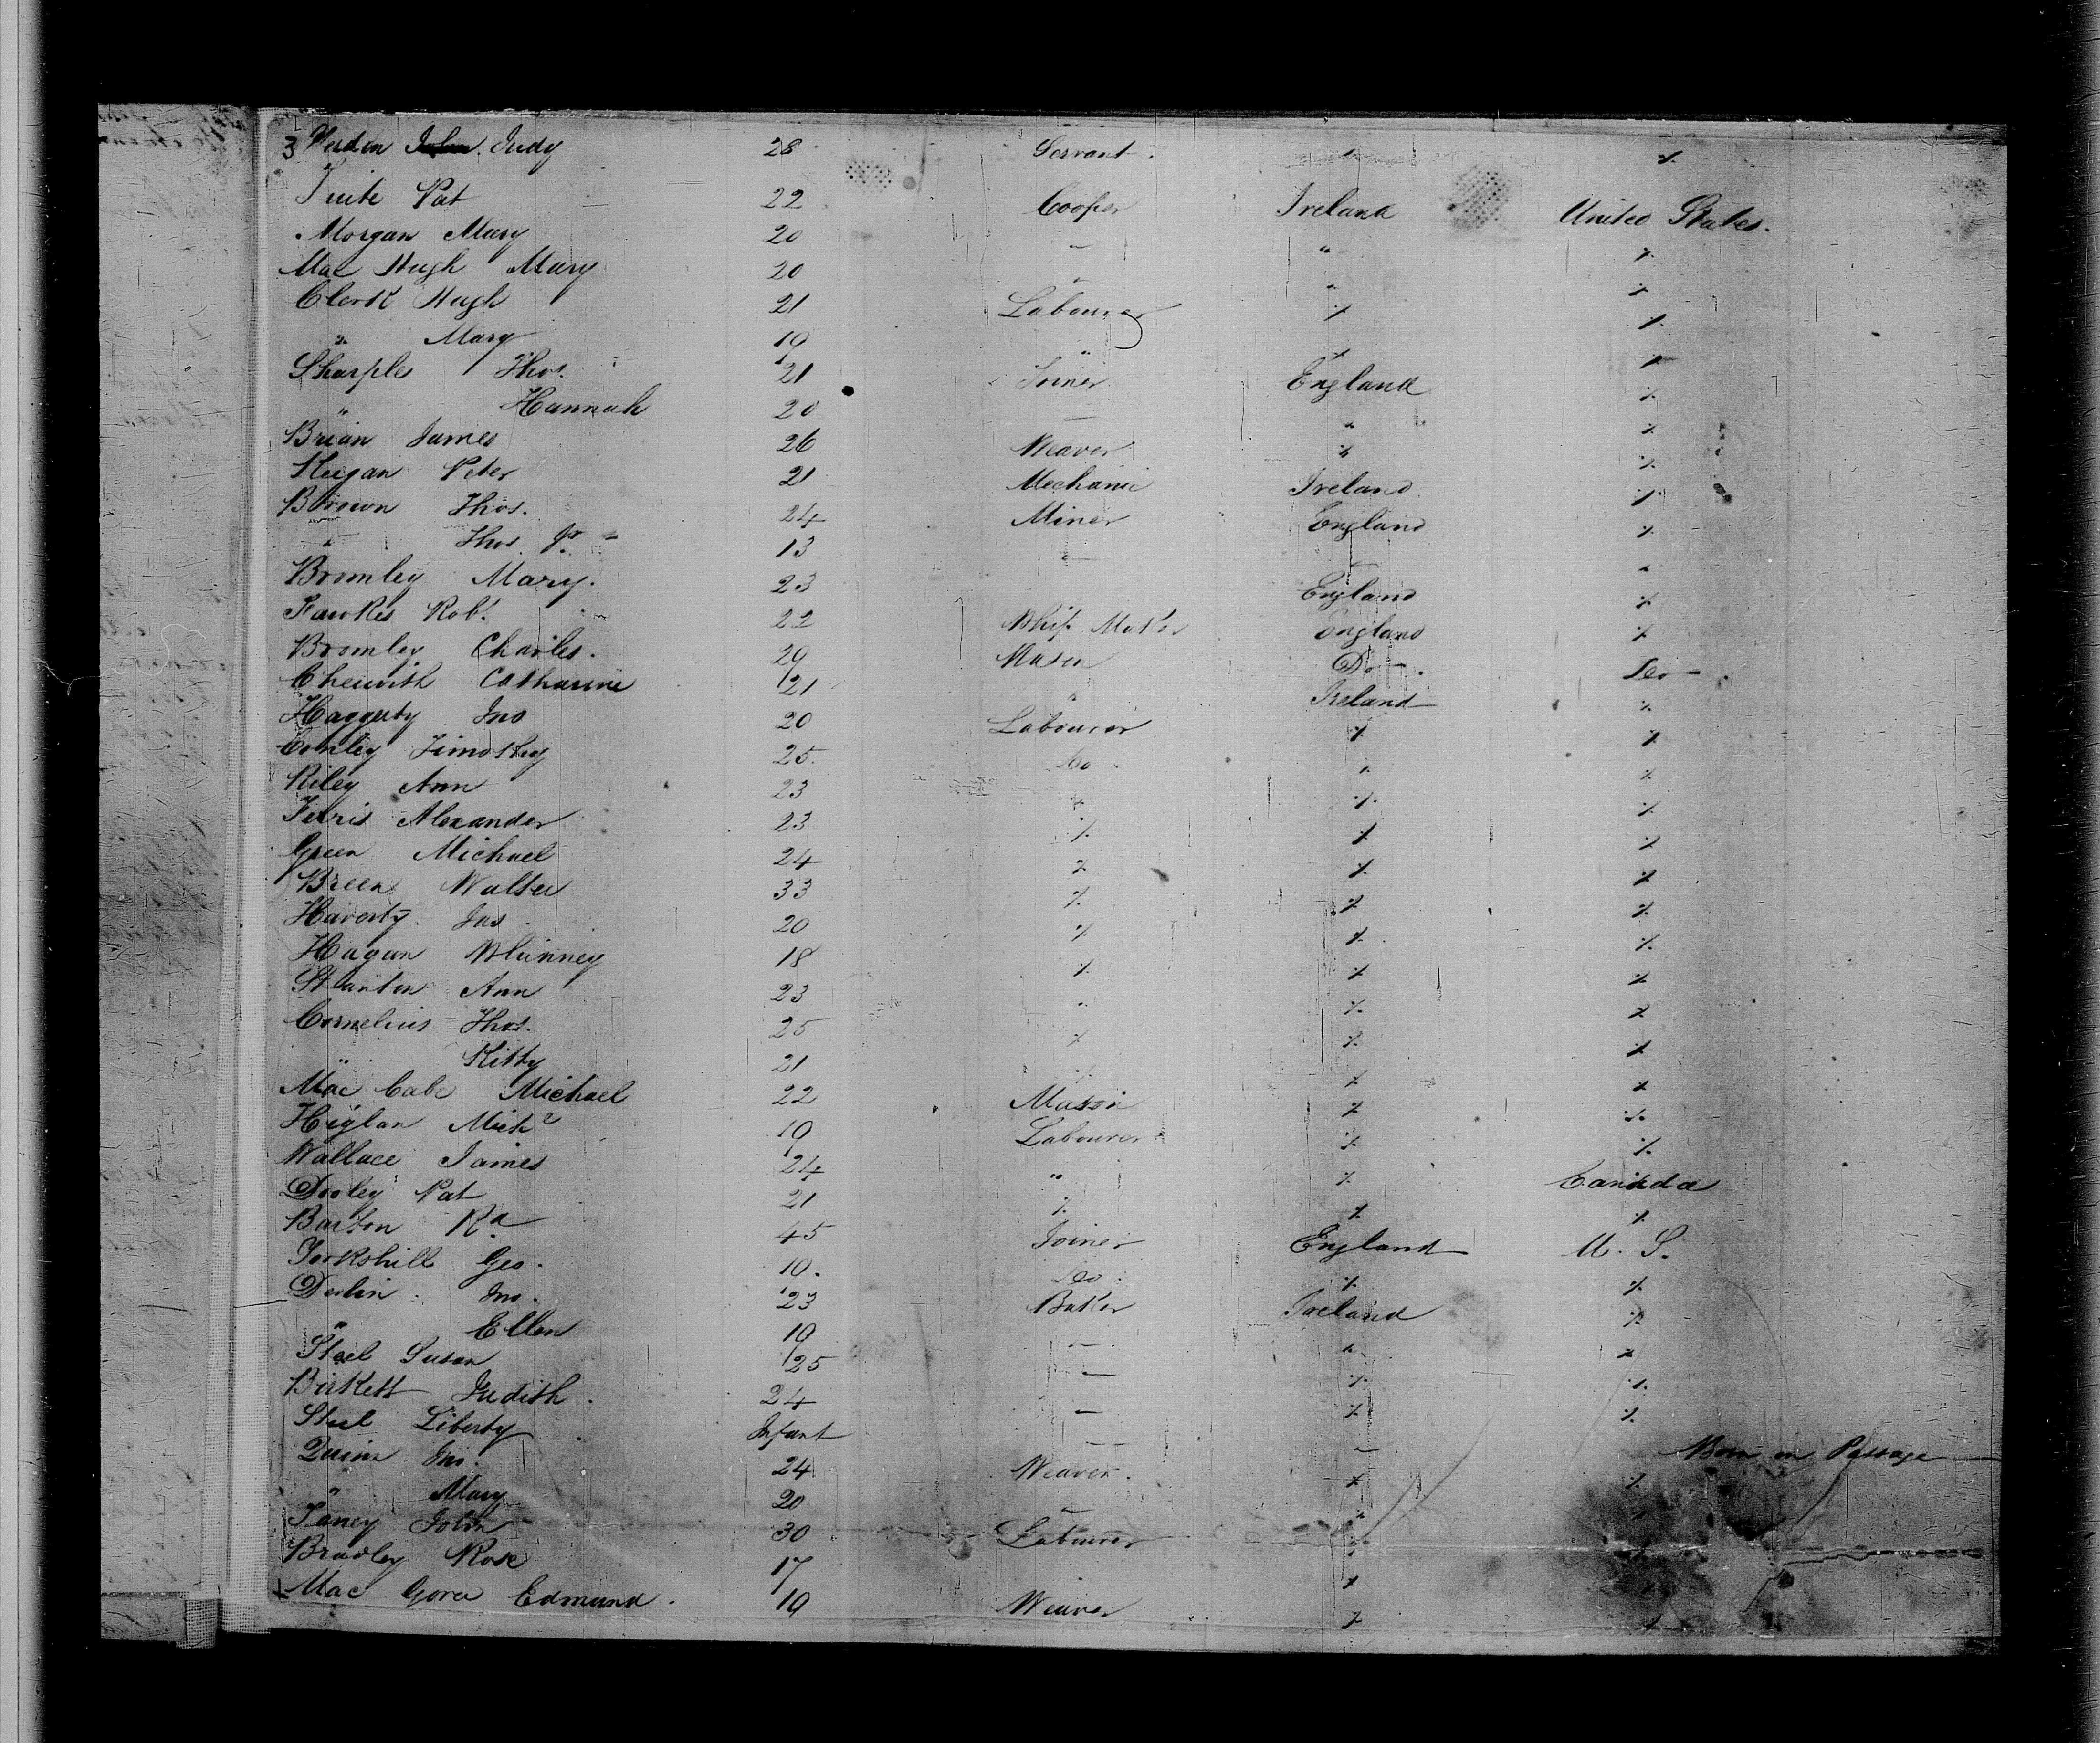 3 Verdin John Judy 28 Servant. " ⁒
Tuite Pat 22 Cooper Ireland United States.
Morgan Mary 20 — " ⁒
Mac Hugh Mary 20 " " ⁒
Clerk Hugh 21 Labourer ⁒ ⁒
" Mary 19 " " ⁒
Sharples Thos. 21 Joiner England ⁒
" Hannah 20 — " ⁒
Brian James 26 Weaver ⁒ ⁒
Keegan Peter 21 Mechanic Ireland ⁒
Brown Thos. 24 Miner England ⁒
" Thos. Jr — 13 — — "
Bromley Mary. 23 England ⁒
Fawkes Robt. 22 Whip Maker England ⁒
Bromley Charles. 29 Mason Do — . do —
Catharine 21 " Ireland ⁒
Haggerty Jno 20 Labourer ⁒ ⁒
Conley Timothy 25. do . ⁒ ⁒
Riley Ann 23 " ⁒ ⁒
Ferris Alexander 23 ⁒ ⁒ ⁒
Green Michael 24 ⁒ ⁒ ⁒
Breen Walter 33 ⁒ ⁒ ⁒
Haverty Jas 20 ⁒ ⁒ ⁒
Hagan Whinney 18 ⁒ ⁒ ⁒
Stanton Ann 23 " ⁒ ⁒
Cornelius Thos. 25 ⁒ ⁒ ⁒
" Kitty 21 ⁒ ⁒ ⁒
Mac Cabe Michael 22 Mason ⁒ ⁒
Higlan Michl 19 Labourer ⁒ ⁒
Wallace James 24 " ⁒ Canada
Dooley Pat 21 ⁒ ⁒ ⁒
Barton Rd 45 Joiner England U. S.
Geo. 10. do . ⁒ ⁒
Devlin . Jno. 23 Baker Ireland ⁒
" Ellen 19 — " ⁒
Steel Susan 25 — ⁒ ⁒
Birkett Judith . 24 — ⁒ ⁒
Steel Liberty Infant — — Born on Passage
Quinn Jno. 24 Weaver. ⁒ ⁒
" Mary 20 — " "
Taney John 30 Labourer " ⁒
Bradley Rose 17 ⁒
Mac Gorer Edmund . 19 Weaver ⁒ ⁒